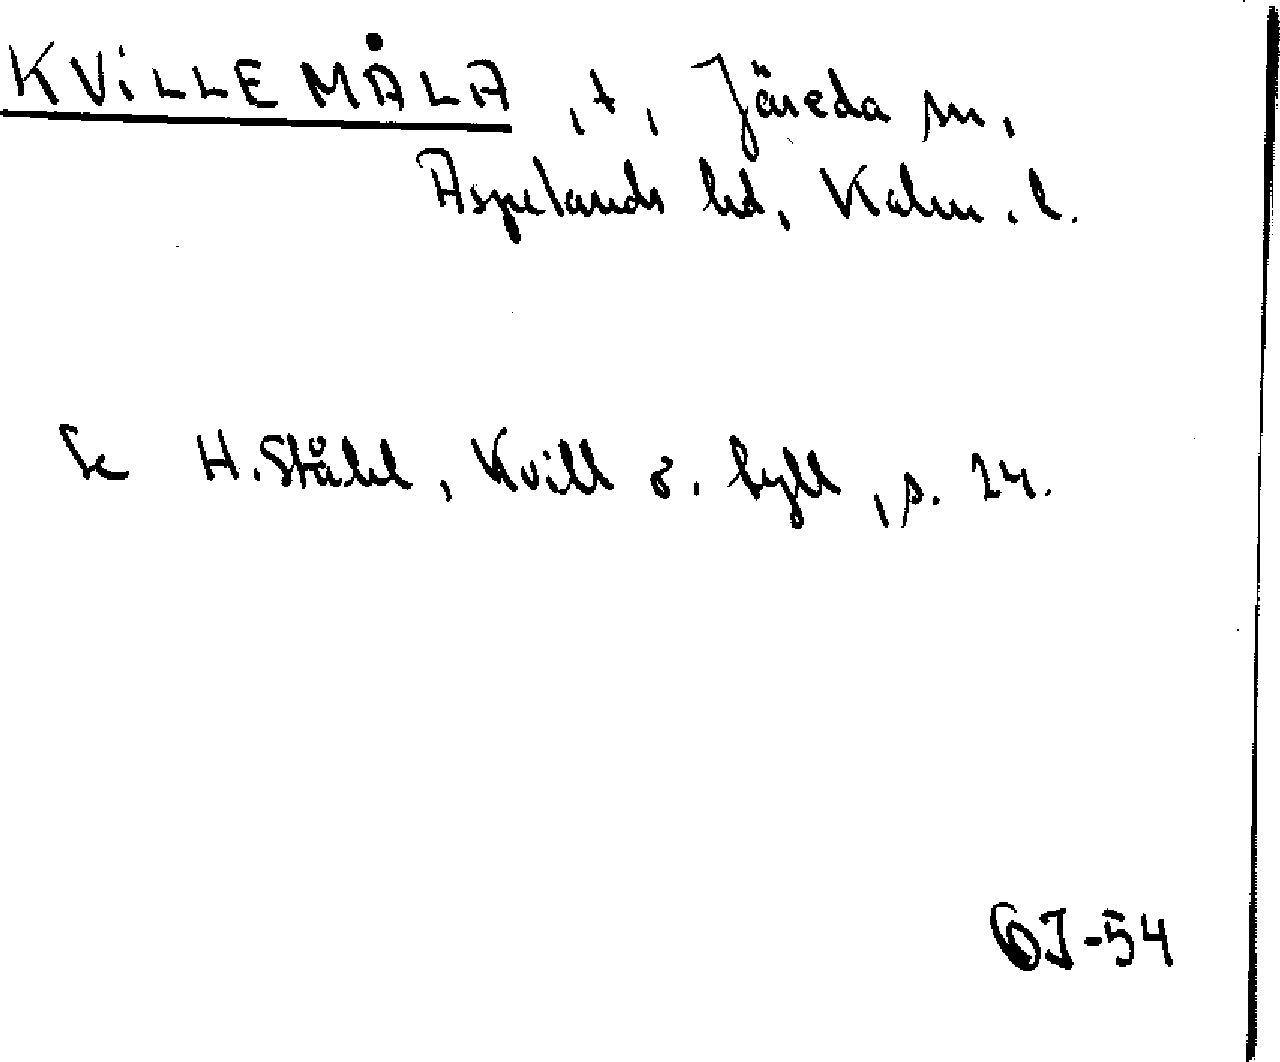 KVILLEMÅLA, t, Järeda sn,
Aspelands hd, Kalm. l.
Se H. Ståhl, Kvill o. tyll, s. 24.
GJ-54